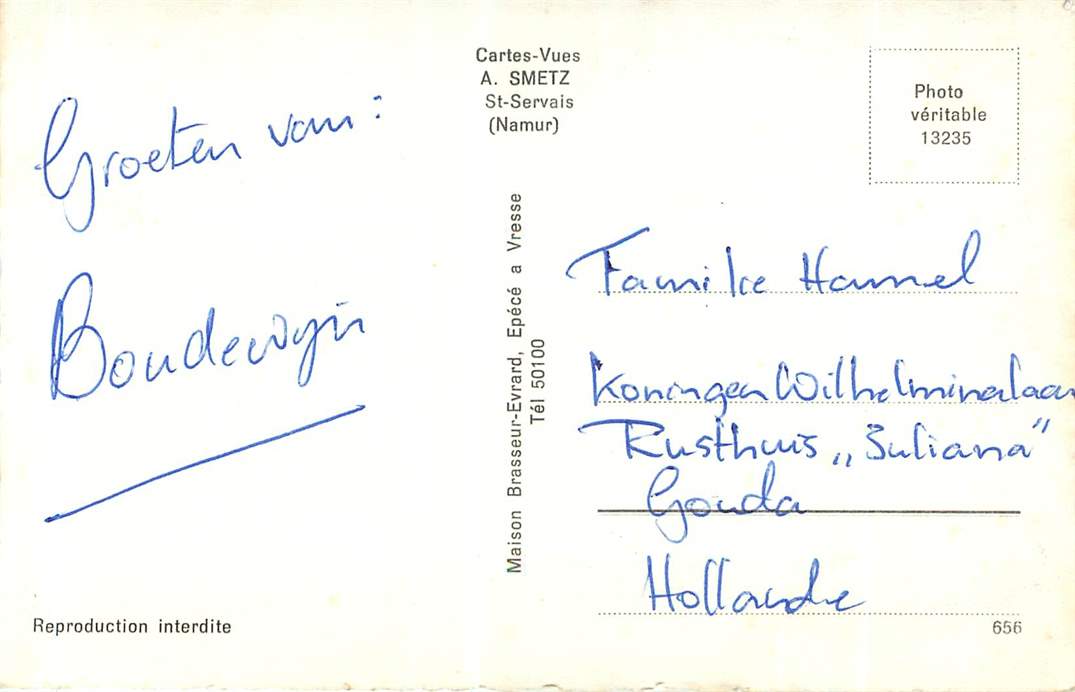 Groeten van:
Boudewijn
Cartes-Vues
A. SMETZ
St-Servais
(Namur)
Maison Brasseur-Evrard, Epécé a Vresse
Tél 50100
Photo
véritable
13235
Familie Hamel
Koningen Wilhelminalaan
Rusthuis „Juliana"
Gouda
Hollande
Reproduction interdite
656